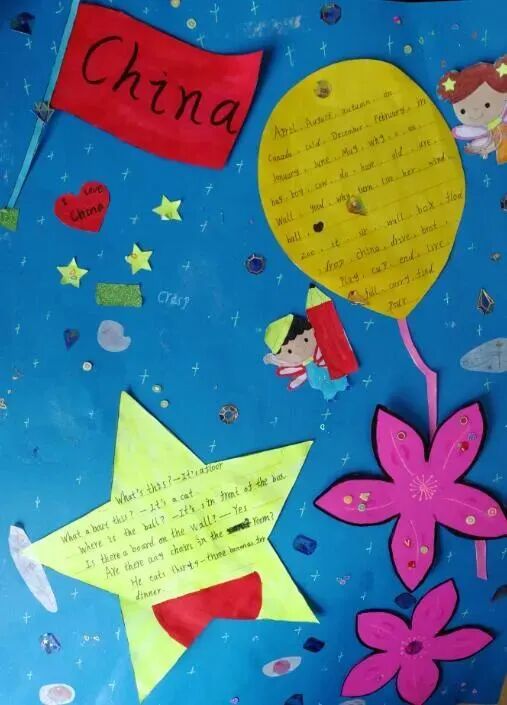 China
I love
China
April. August. autumn. on.
Canada. cold. December. February. in
January. June. May. why. a. as.
bag. boy. cow. do. have. old. are.
Wall. your. why. turn. her. wind.
ball.
Zoo. it. wall. box. floor
drop. china. drive. brot.
Play. cup. end. live.
full. carry. find
Crisp
What's this?—It's a floor
What a bout this?—It's a cat.
Where is the ball?—It's, in front of the box.
Is there a board on the wall?—Yes
Are there any chairs in the room?
He eats thirty-three bananas for
dinner.